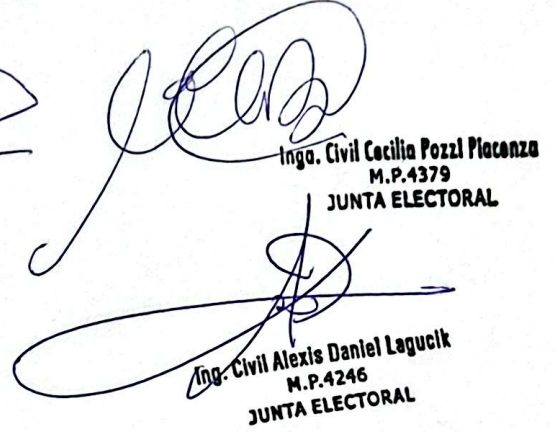 Inga. Civil Cecilia Pozzi Piacenza
M.P.4379
JUNTA ELECTORAL
Ing. Civil Alexis Daniel Lagucik
M.P.4246
JUNTA ELECTORAL